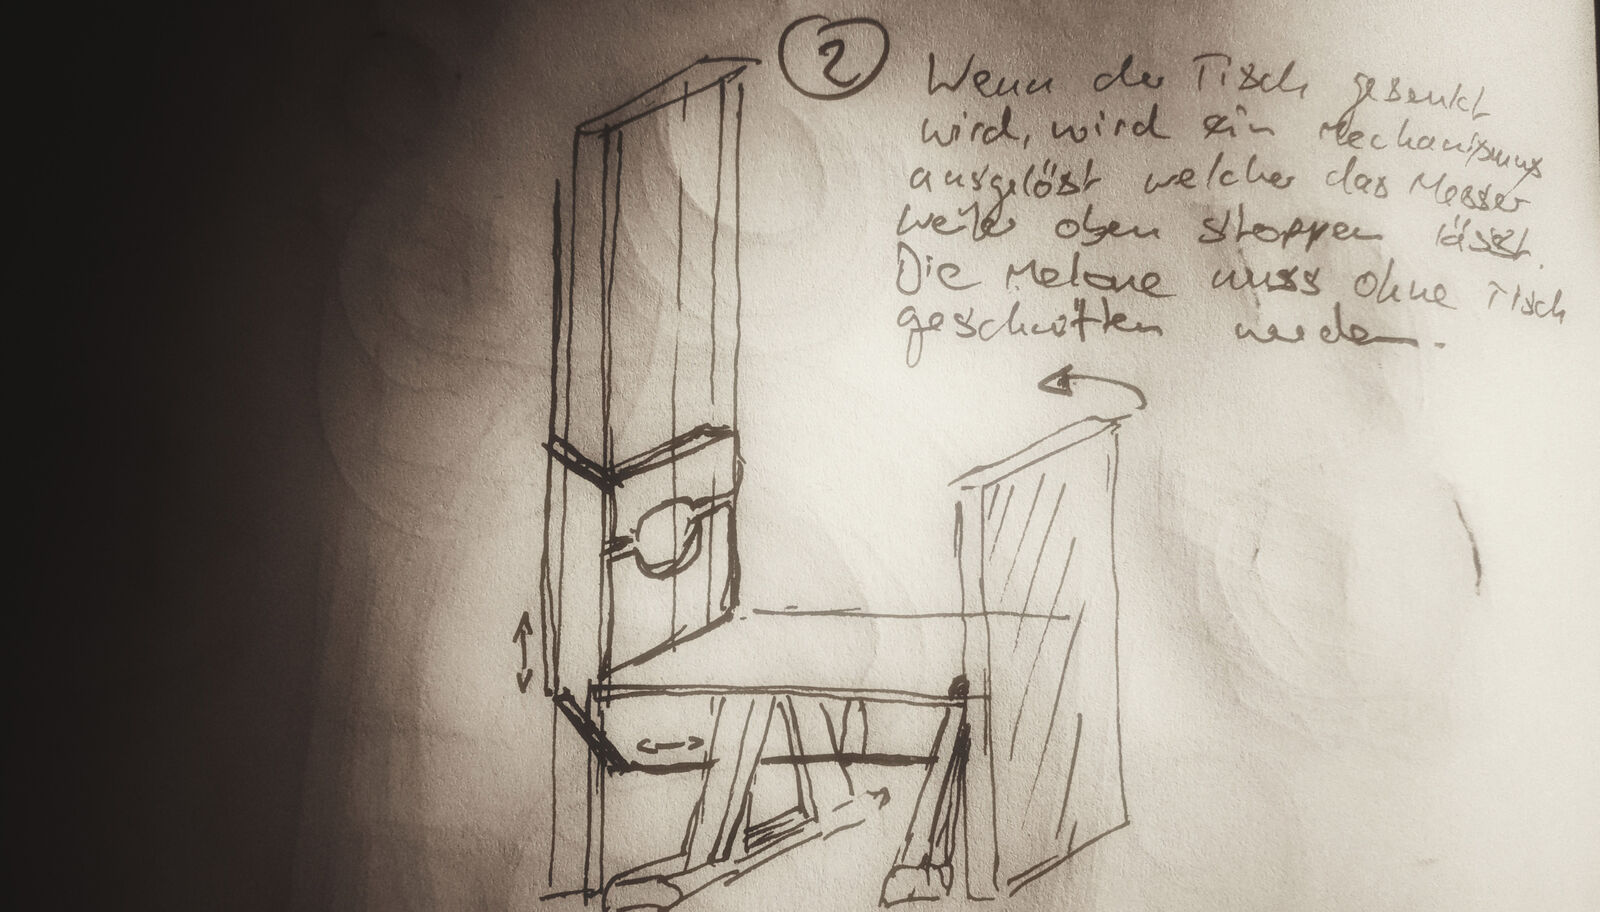 2
Wenn der Tisch gesenkt
wird, wird ein Mechanismus
ausgelöst welcher das Messer
weiter oben stoppen lässt.
Die Melone muss ohne Tisch
geschnitten werden.